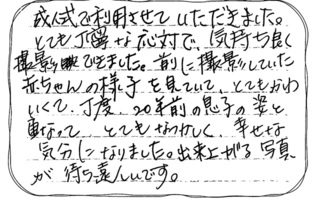 成人式で利用させていただきました。
とても丁寧な応対で、気持ち良く
撮影できました。前に撮影していた
赤ちゃんの様子を見ていて、とてもかわ
いくて、丁度、20年前の息子の姿と
重なって とてもなつかしく、幸せな
気分になりました。出来上がる写真
が待ち遠しいです。